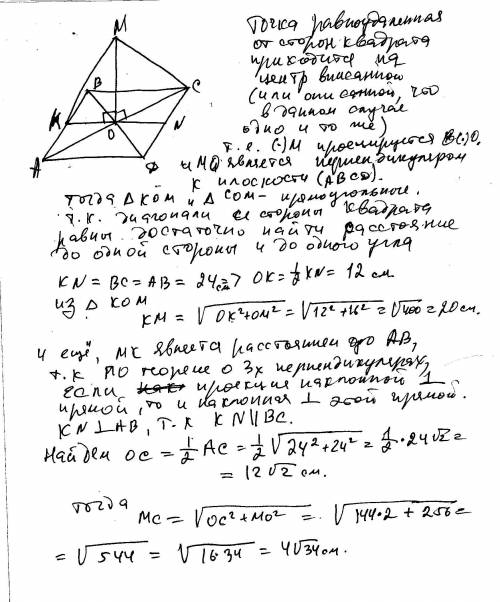 M
B
C
K
O
N
A
D
Точка равноудаленная
от сторон квадрата
приходится на
центр вписанной
(или описанной, что
в данном случае
одно и то же)
т.е. (·)M проецируется в (·)O.
и MO является перпендикуляром
к плоскости (ABCD).
Тогда △KOM и △COM – прямоугольные.
т.к. диагонали и стороны квадрата
равны достаточно найти расстояние
до одной стороны и до одного угла
KN = BC = AB = 24 см => OK = ½ KN = 12 см
из △ KOM
KM = √OK²+OM² = √12²+16² = √400 = 20 см.
И ещё, MK является расстоянием до AB,
т.к по теореме о 3х перпендикулярах,
если проекция наклонной ⊥
прямой, то и наклонная ⊥ этой прямой.
KN ⊥ AB, т.к KN ∥ BC.
Найдем OC = ½ AC = ½ √24²+24² = ½ · 24√2 =
= 12√2 см.
тогда
MC = √OC²+MO² = √144·2 + 256 =
= √544 = √16·34 = 4√34 см.